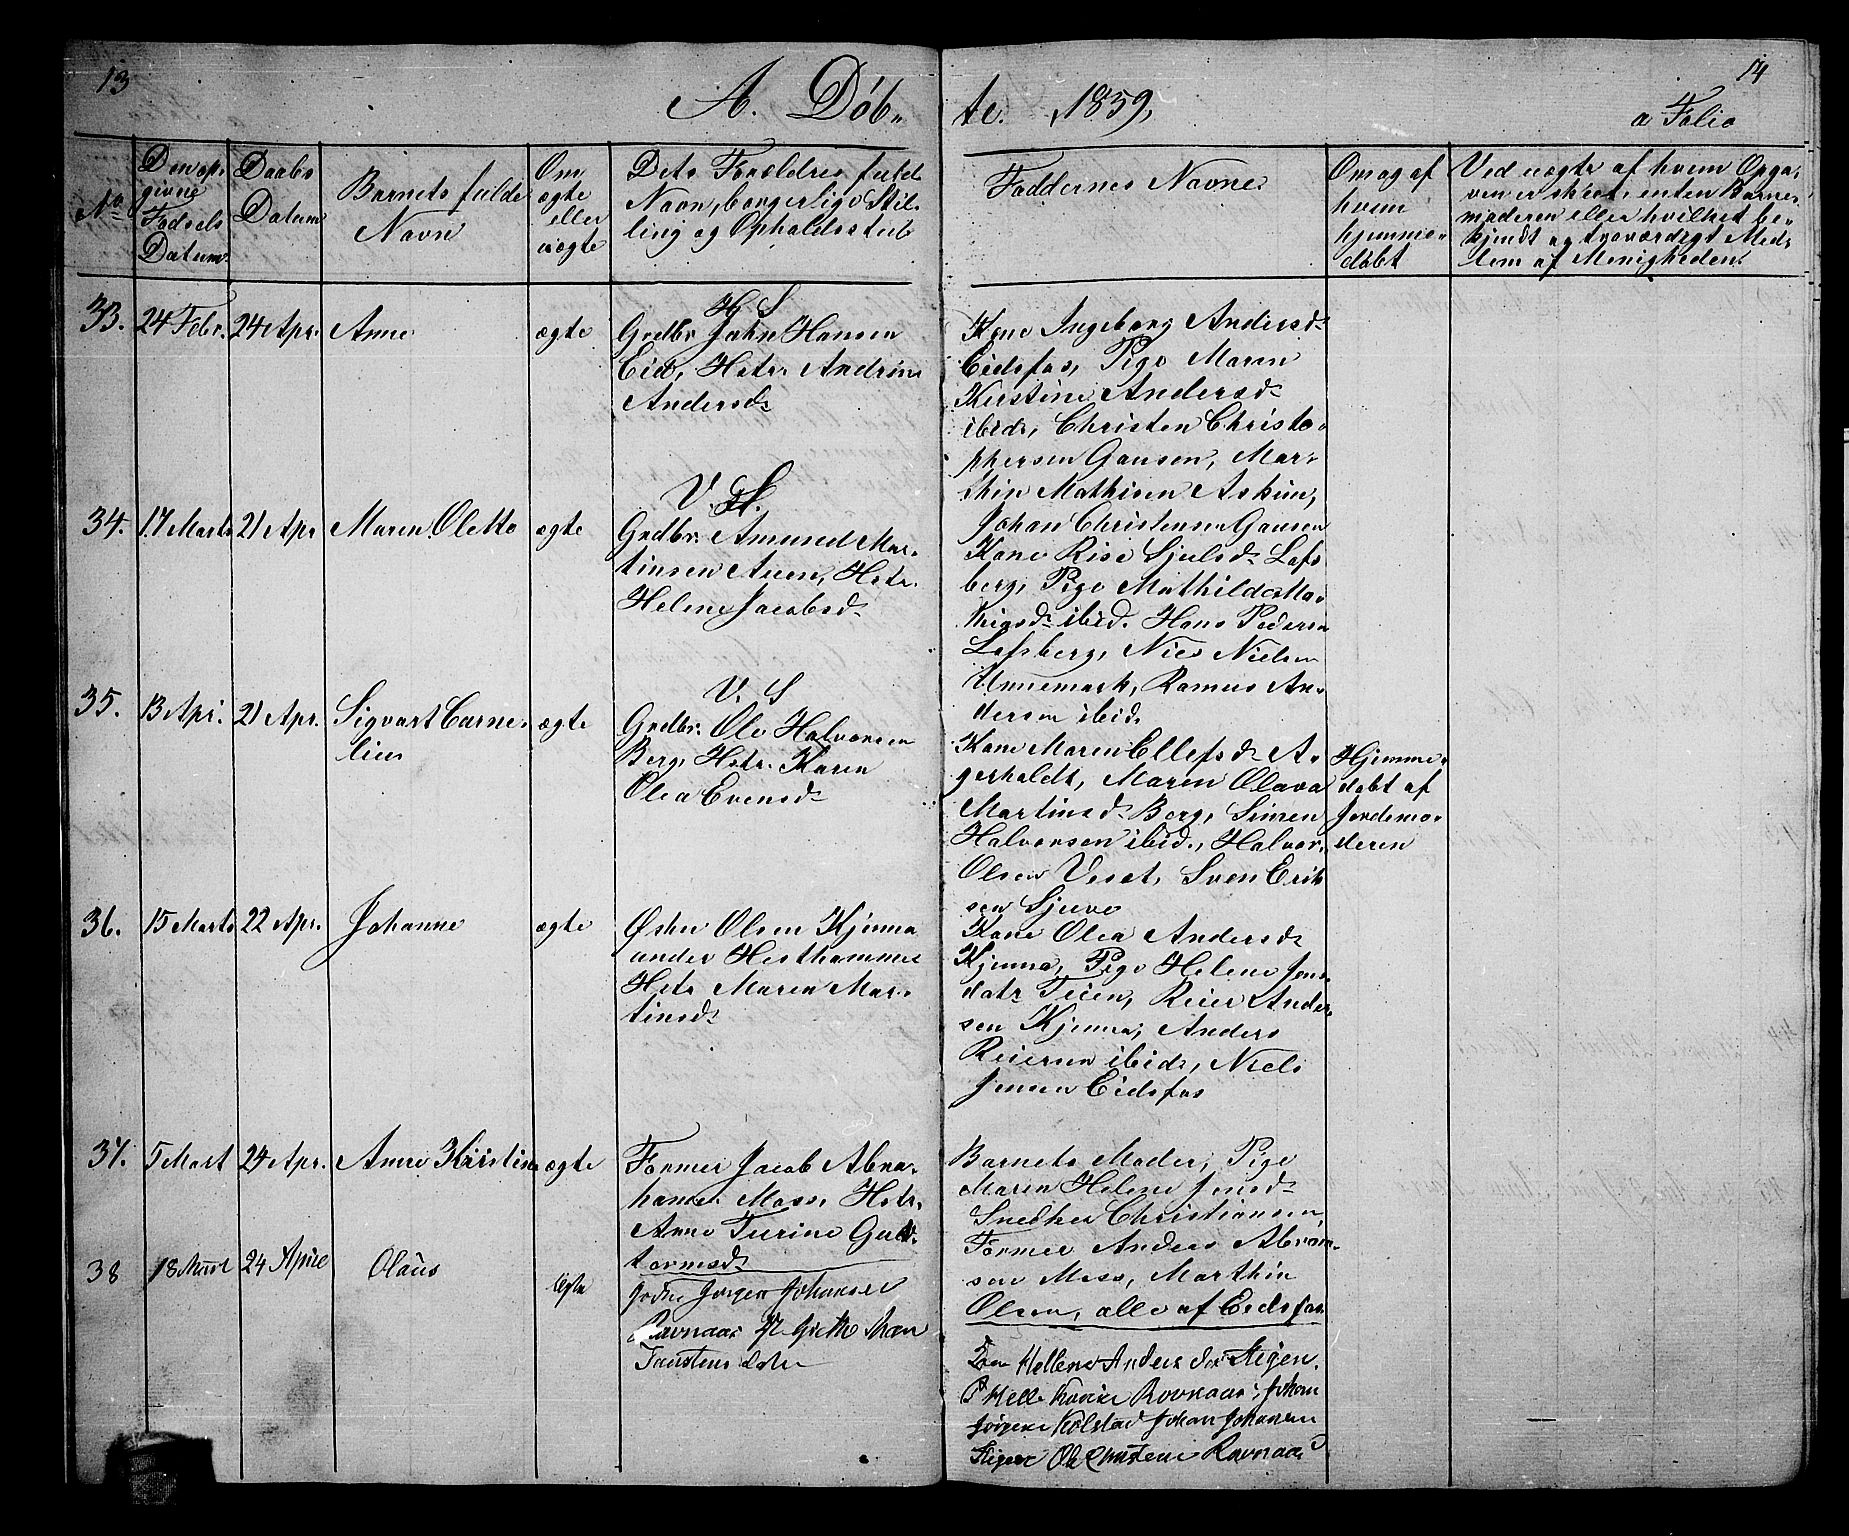 13
14
A. Døb„
te. 1859,
a Folio
No
Den op„
givne
Fødsels
Datum.
Daabs
Datum
Barnets fulde
Navn
Om
ægte
eller
uægte
Dets Forældres fulde
Navn, borgerlige Stil„
ling og Opholdssted
Faddernes Navne.
Om og af
hvem
hjemme„
døbt
Ved uægte af hvem Opga„
ven er skeet, enten Barne„
moderen eller hvilket be„
kjendt og troværdigt Med„
lem af Menigheden.
33. 24 Febr. 24 Apr. Anne ægte
H S
Grdbr. John Hansen
Eid, Hstr. Andrine
Andersd.
Kone Ingeborg Andersd.
Eidsfos, Pige Maren
Kirstine Andersd.
ibid., Christen Christo„
phersen Gausen, Mar„
thin Mathisen Askim,
Johan Christensen Gausen
34. 17 Marts 21 Apr Maren Olette ægte
V. S.
Grdbr. Amund Mar„
tinsen Auen, Hstr.
Helene Jacobsd.
Kone Rise Sjulsd. Lofs
berg, Pige Mathilde Ma„
ibid. Hans Pedersen
Lofsberg, Niels Nielsen
Unnemark, Rasmus An„
dersen ibid.
35. 13 Apr. 21 Apr. Sigvart Corne„ ægte
lius
V. S
Grdbr. Ole Halvorsen
Berg, Hstr. Karen
Olea Evensd.
Kone Maren Ellefsd. A„
gerholdt, Maren Olava
Martinsd. Berg, Simen
Halvorsen ibid., Halvor
Olsen Veset, Sven Erik
sen Sjuve
Hjemme„
døbt af
Jordemo„
deren
36. 15 Marts 22 Apr. Johanne ægte
Østen Olsen Kjenna
under Hesthammer
Hstr Maren Mar„
tinsd.
Kone Olea Andersd.
Kjenna, Pige Helene Jens
datr Teien, Reier Ander
sen Kjenna, Anders
Reiersen ibid., Niels
Jensen Eidsfos
37. 5 Mart 24 Apr. Anne Kristine ægte
Former Jacob Abra„
hamsen Moss, Hstr.
Anne Turine Gul„
tormsd.
Barnets Moder, Pige
Maren Helene Jensd.
Snedker Christiansen,
Former Anders Abram„
sen Moss, Marthin
Olsen, alle af Eidsfos
38 18 Mart 24 Aprile Olaus ægte
Jørgen Johansen
Ravnaas Grethe Maren
datter
Kone Hellene Anders dat Stigen,
P Helle Karine Rovnaas, Johan
Jørgens Kolstad Johan Johansen
Stigen Ole Christens Ravnaas